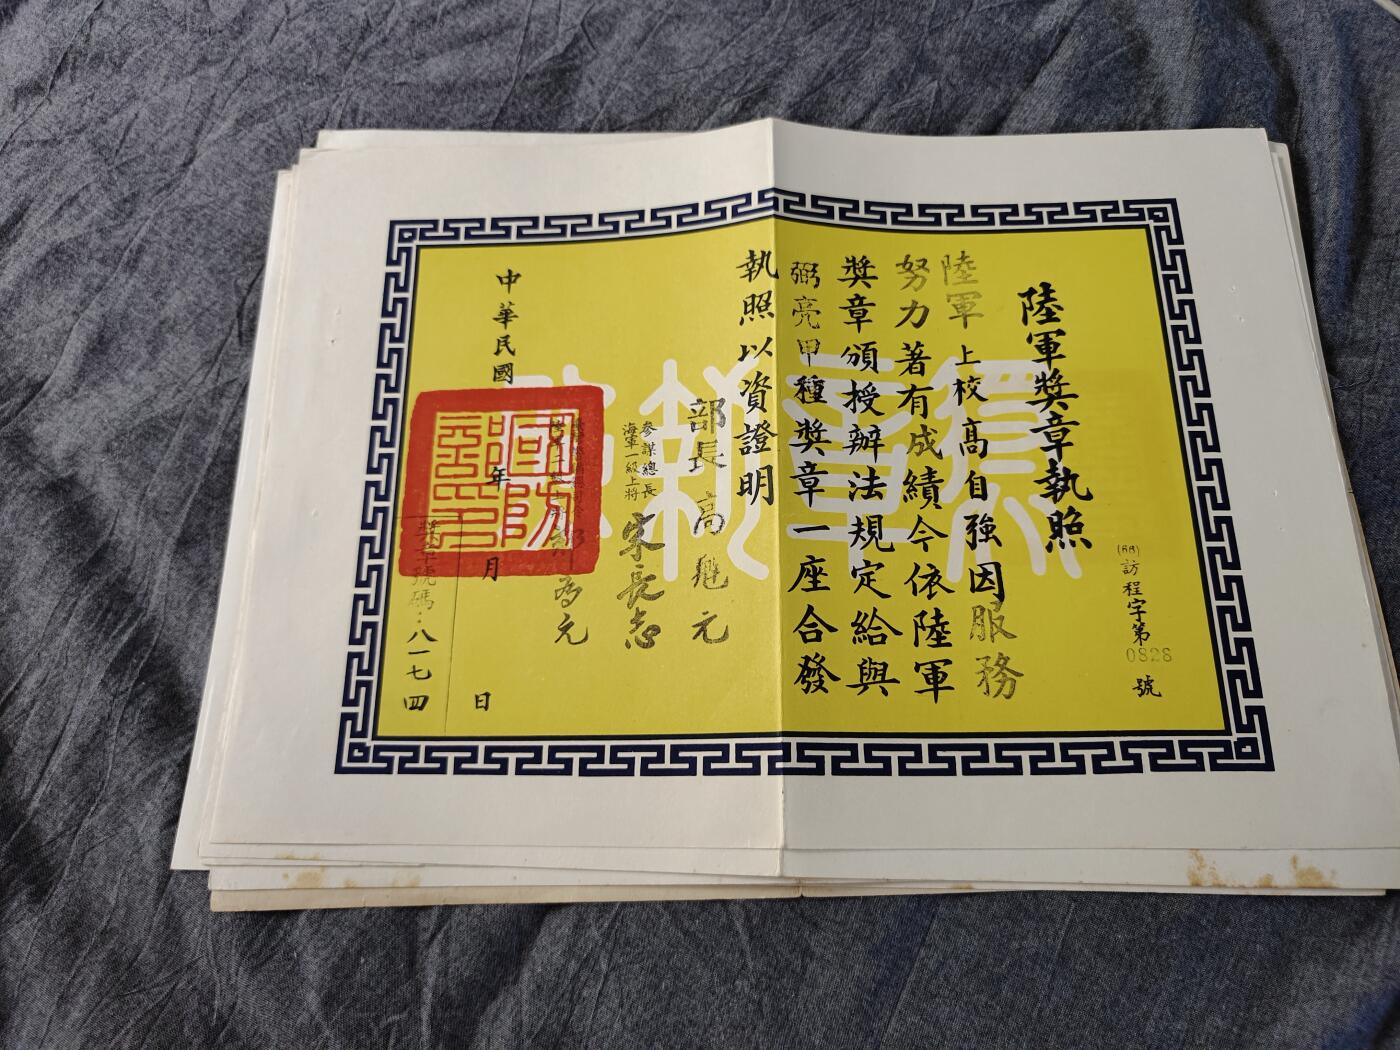 訪程字第0828號
陸軍獎章執照
陸軍上校高自強因服務
努力著有成績今依陸軍
獎章頒授辦法規定給與
弼亮甲種獎章一座合發
執照以資證明
部長 高魁元
參謀總長
海軍一級上將 宋長志
鄭為元
中華民國 年 月 日
國防部印
獎章號碼：八一七四